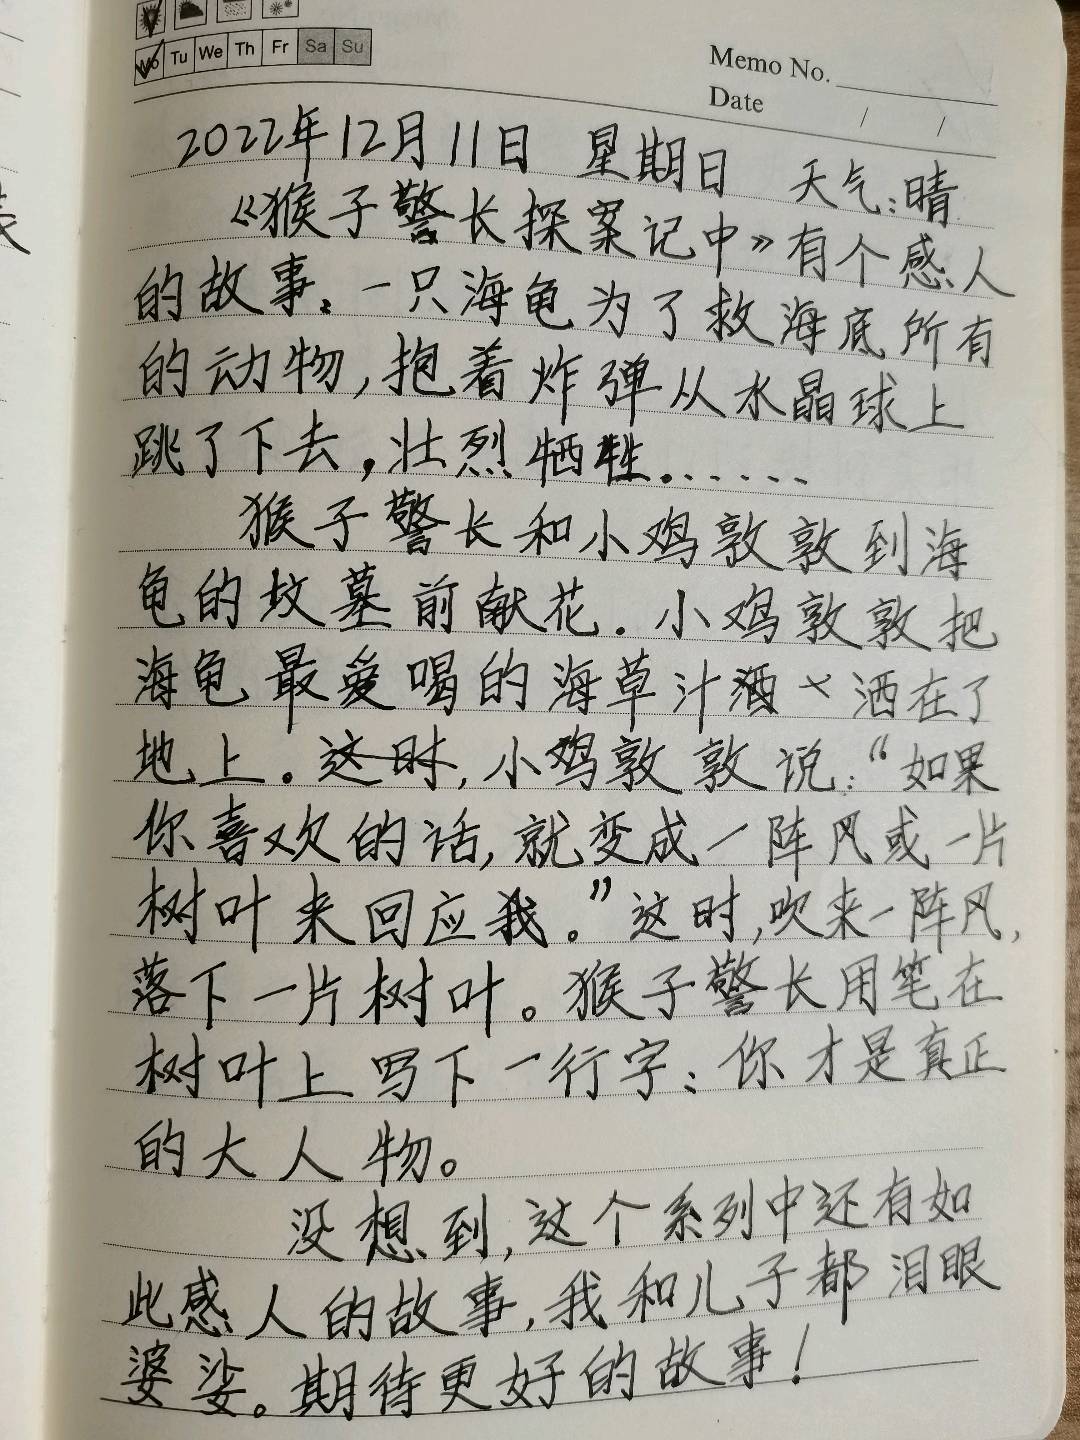 Mo Tu We Th Fr Sa Su
Memo No.
Date / /
2022年12月11日 星期日 天气:晴
《猴子警长探案记中》有个感人
的故事。一只海龟为了救海底所有
的动物,抱着炸弹从水晶球上
跳了下去,壮烈牺牲。......
猴子警长和小鸡敦敦到海
龟的坟墓前献花。小鸡敦敦把
海龟最爱喝的海草汁酒×洒在了
地上。这时,小鸡敦敦说:“如果
你喜欢的话,就变成一阵风或一片
树叶来回应我。”这时,吹来一阵风,
落下一片树叶。猴子警长用笔在
树叶上写下一行字:你才是真正
的大人物。
没想到,这个系列中还有如
此感人的故事,我和儿子都泪眼
婆娑。期待更好的故事!